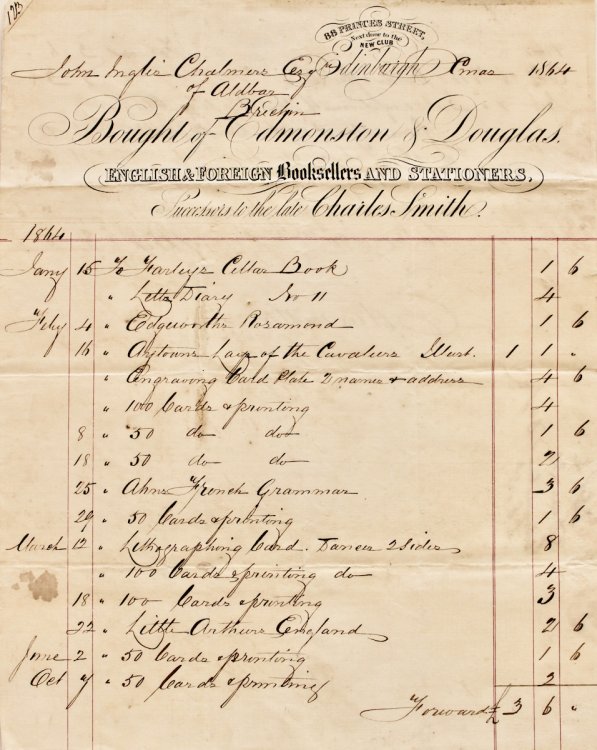 123
88 PRINCES STREET,
Next door to the
NEW CLUB
Edinburgh Xmas 1864
John Inglis Chalmers Esqr
of Aldbar
Brechin
Bought of Edmonston & Douglas.
ENGLISH & FOREIGN Booksellers AND STATIONERS,
Successors to the late Charles Smith.
1864
Jany 15 To Farley's Cellar Book 1 6
" Letts Diary No 11 4
Feby 4 " Edgeworths Rosamond 1 6
16 " Aytouns Lays of the Cavaliers Illust. 1 1 "
" Engraving Card Plate 2 names & address 4 6
" 100 Cards & printing 4
8 " 50 do do 1 6
18 " 50 do do 2
25 " Ahns French Grammar 3 6
29 " 50 Cards & printing 1 6
March 12 " Lithographing Card. Dances 2 Sides 8
" 100 Cards & printing do 4
18 " 100 Cards & printing 3
22 " Little Arthurs England 2 6
June 2 " 50 Cards & printing 1 6
Oct 7 " 50 Cards & printing 2
Forward £ 3 6 "